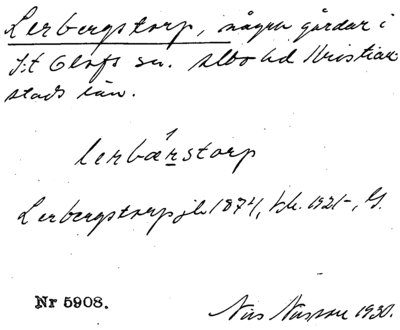 Lerbergstorp, några gårdar i
S:t Olofs sn. Albo hd Kristian-
stads län.
lerbærstorp
Lerbergstorp jb 1874, kk. 1921-, G.
Nr 5908.
Nils 1930.